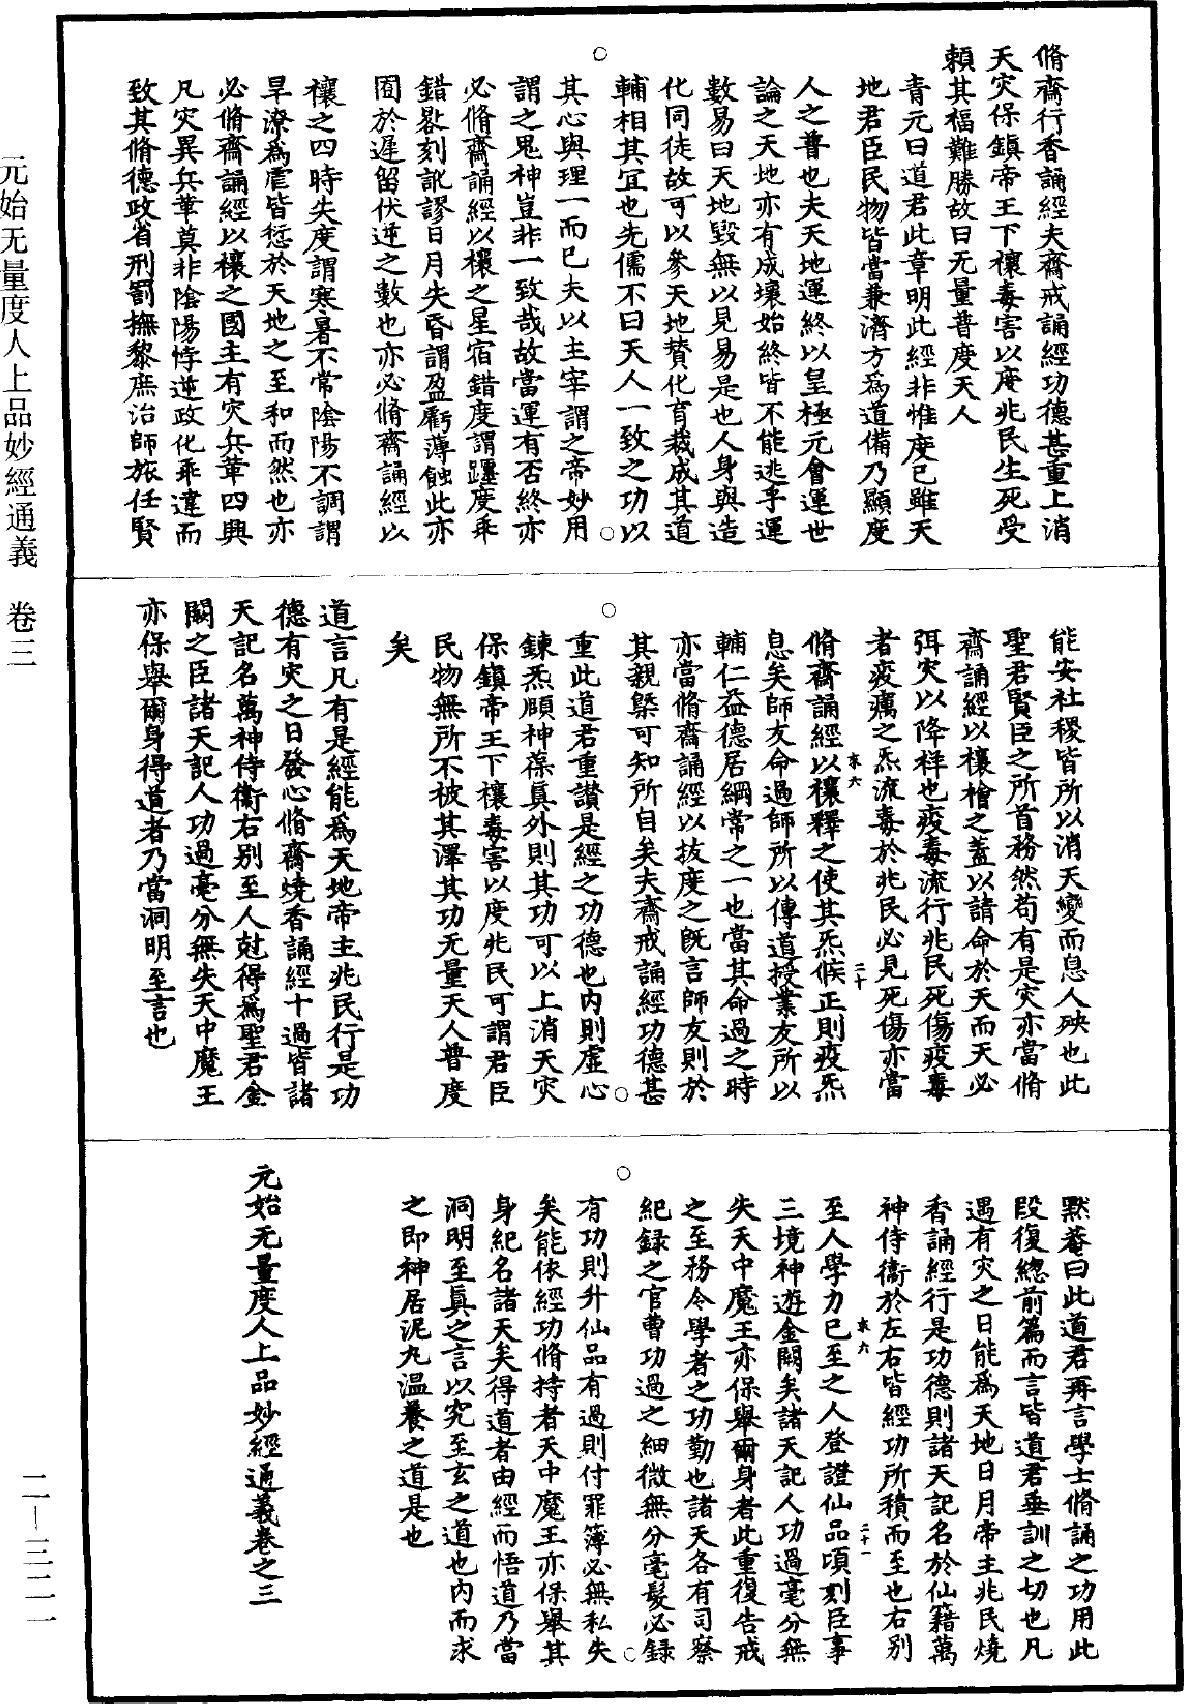 脩齋行香誦經夫齋戒誦經功德甚重上消
天灾保鎮帝王下禳毒害以度兆民生死受
頼其福難勝故曰无量普度天人
青元曰道君此章明此經非惟度已雖天
地君臣民物皆當兼濟方為道備乃顯度
人之普也夫天地運終以皇極元會運世
論之天地亦有成壞始終皆不能逃乎運
數易曰天地毀無以見易是也人身與造
化同徒故可以參天地賛化育裁成其道
輔相其宜也先儒不曰天人一致之功以
其心與理一而已夫以主宰謂之帝妙用
謂之鬼神豈非一致哉故當運有否終亦
必脩齋誦經以禳之星宿錯度謂躔度乖
錯晷刻訛謬日月失昏謂盈虧薄蝕此亦
囿於遲留伏逆之數也亦必脩齋誦經以
禳之四時失度謂寒暑不常陰陽不調謂
旱潦為虐皆愆於天地之至和而然也亦
必脩齋誦經以禳之國主有灾兵革四興
凡灾異兵革莫非陰陽悖逆政化乖違而
致其脩德政省刑罰撫黎庶治師旅任賢
能安社稷皆所以消天變而息人殃也此
聖君賢臣之所首務然苟有是灾亦當脩
齋誦經以禳禬之蓋以請命於天而天必
弭灾以降祥也疫毒流行兆民死傷疫毒
者疫癘之炁流毒於兆民必見死傷亦當
脩齋誦經以禳釋之使其炁候正則疫炁
息矣師友命過師所以傳道授業友所以
輔仁益德居綱常之一也當其命過之時
亦當脩齋誦經以拔度之既言師友則於
其親槩可知所自矣夫齋戒誦經功德甚
重此道君重讃是經之功德也内則虛心
鍊炁頤神葆真外則其功可以上消天灾
保鎮帝王下禳毒害以度兆民可謂君臣
民物無所不被其澤其功无量天人普度
矣
道言凡有是經能為天地帝主兆民行是功
德有灾之日發心脩齋燒香誦經十過皆諸
天記名萬神侍衛右别至人尅得為聖君金
闕之臣諸天記人功過毫分無失天中魔王
亦保舉爾身得道者乃當洞明至言也
默菴曰此道君再言學士脩誦之功用此
段復總前篇而言皆道君垂訓之切也凡
遇有灾之日能為天地日月帝主兆民燒
香誦經行是功德則諸天記名於仙籍萬
神侍衛於左右皆經功所積而至也右别
至人學力已至之人登證仙品頃刻臣事
三境神遊金闕矣諸天記人功過毫分無
失天中魔王亦保舉爾身者此重復告戒
之至務令學者之功勤也諸天各有司察
紀録之官曹功過之細微無分毫髮必録
有功則升仙品有過則付罪簿必無私失
矣能依經功脩持者天中魔王亦保舉其
身紀名諸天矣得道者由經而悟道乃當
洞明至真之言以究至玄之道也内而求
之即神居泥丸溫養之道是也
元始无量度人上品妙經通義卷之三
元始无量度人上品妙經通義　卷三
二—三二二